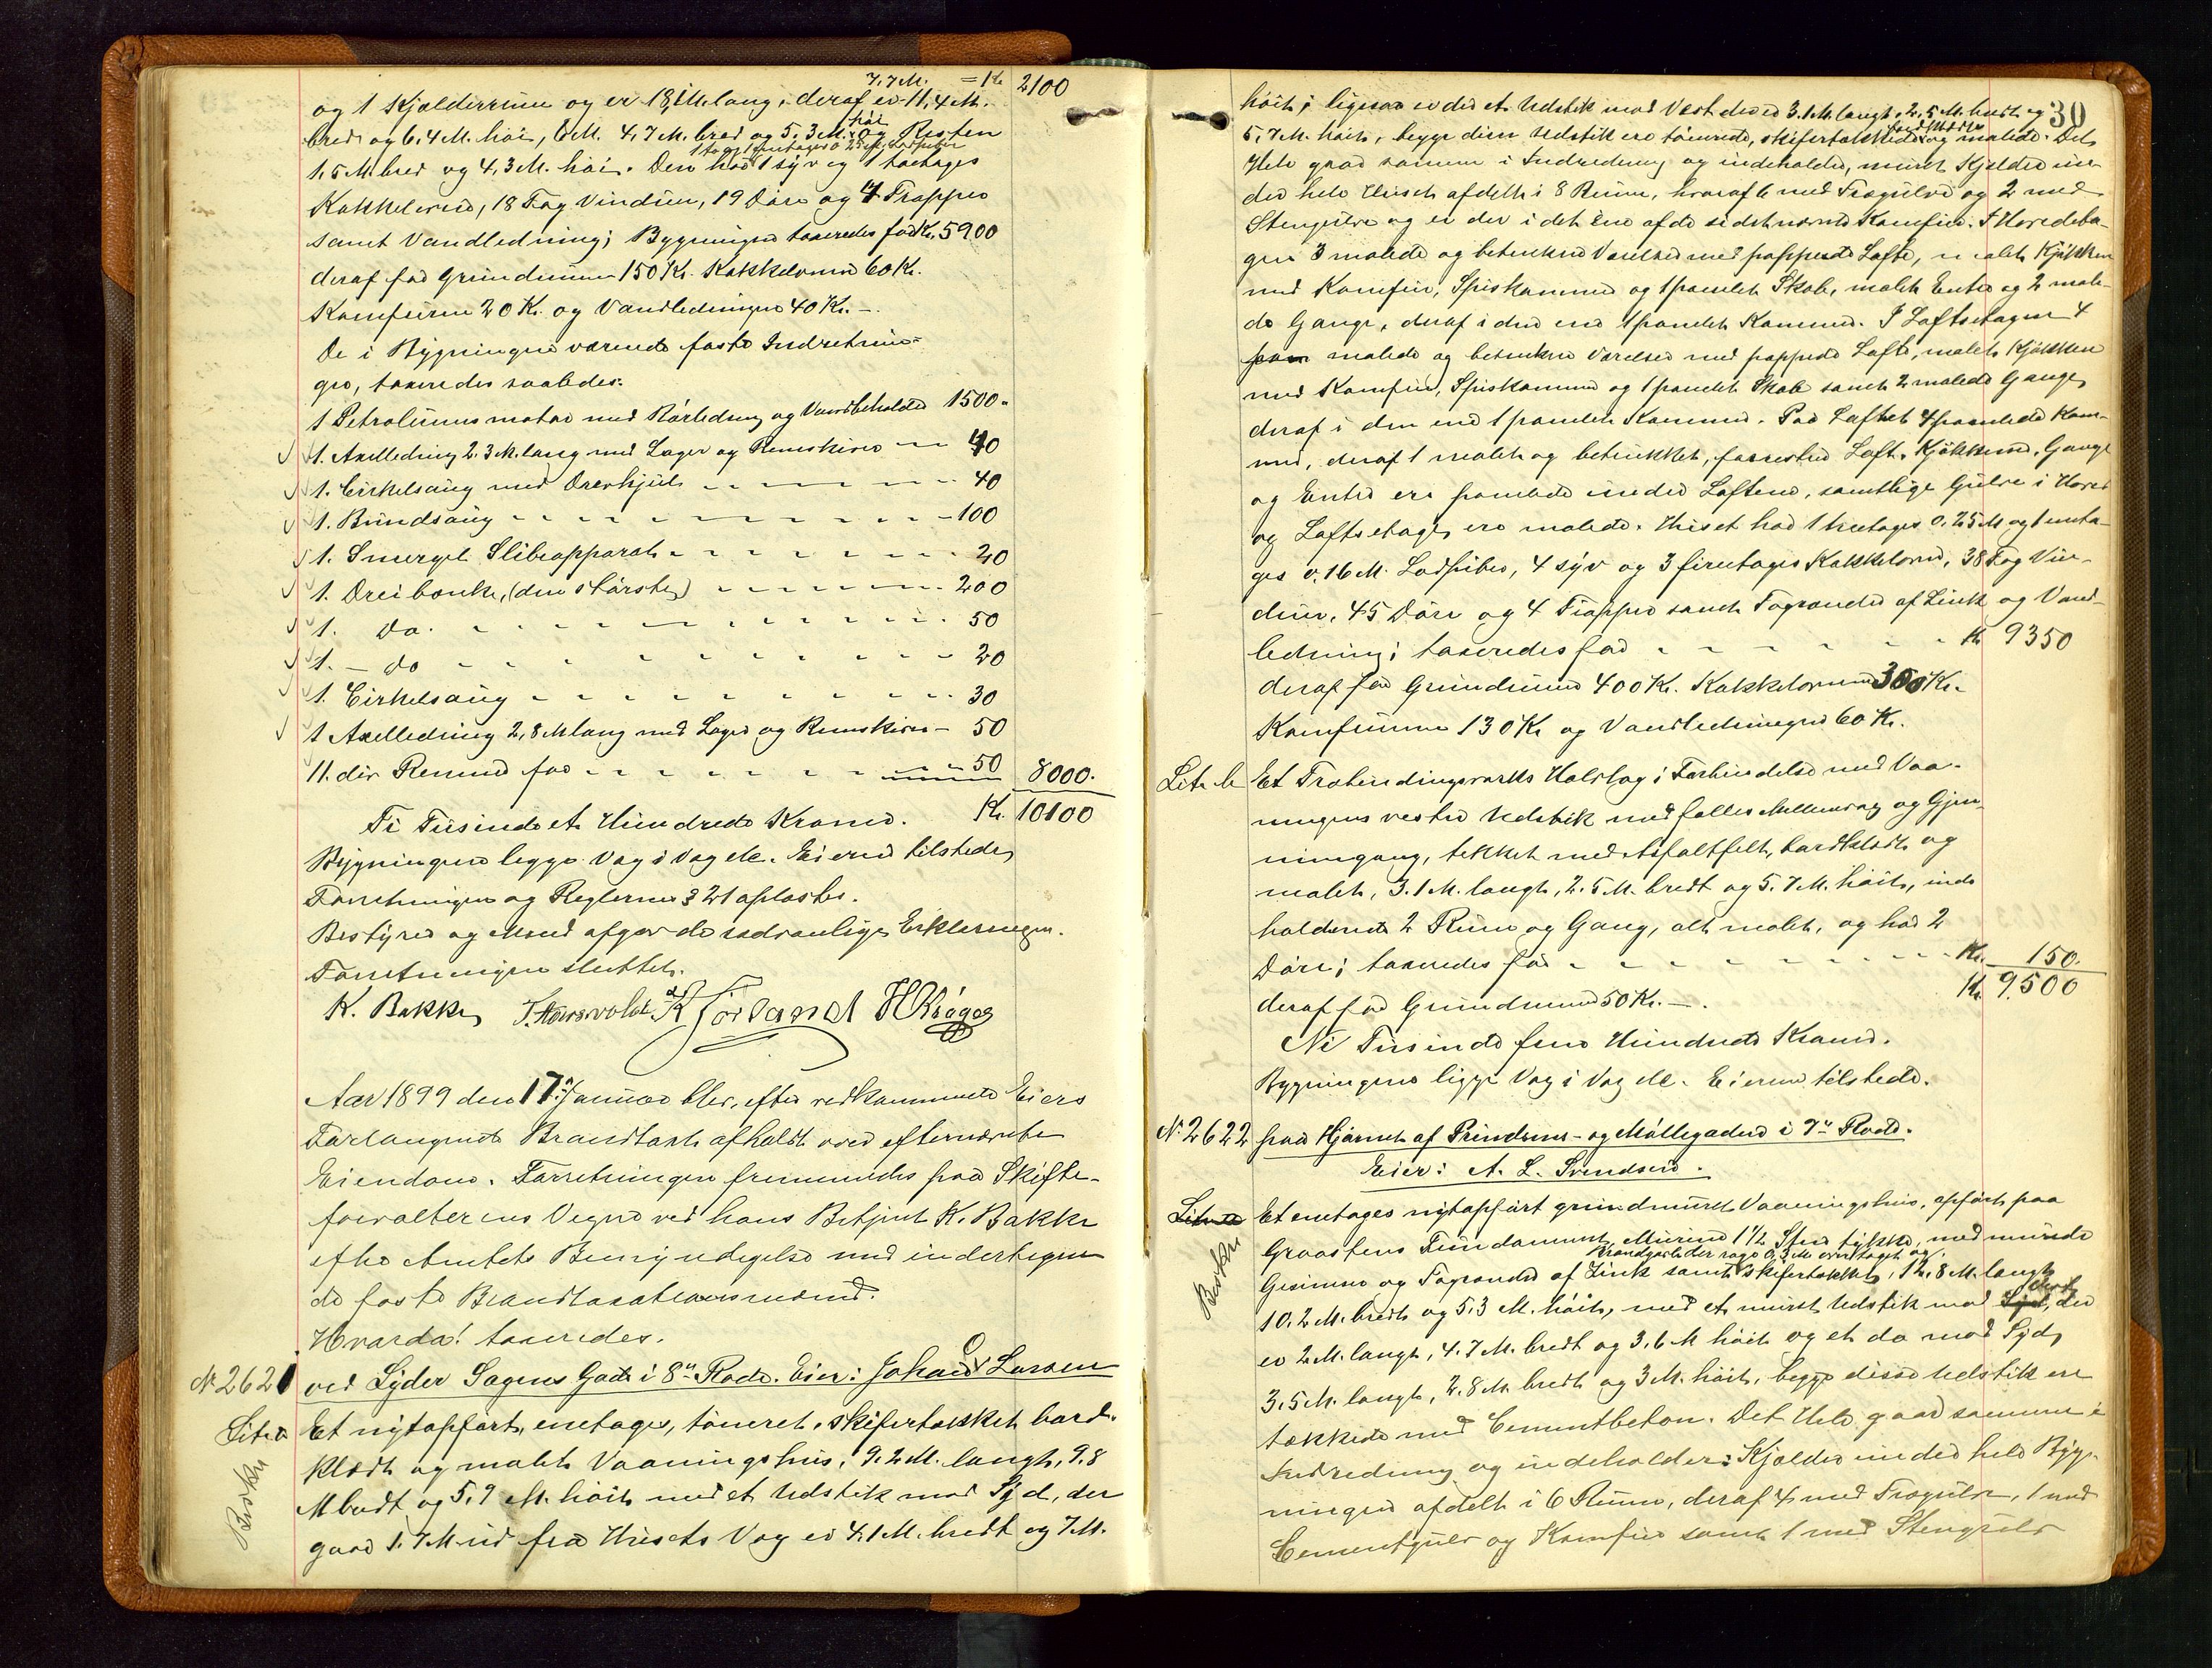 7.7 M. = 1 Kr 2100
og 1 Kjælderrum og er 18,1 M. lang, deraf er 11,4 M.
bred og 6.4 M. høi, 6 M. 4,7 M. bred og 5.3 M. høi og Resten
1 to og 1 enetages 0.25 M. Ladpiber
1.5 M. bred og 4,3 M. høi. Den har 1 syv og 1 toetages
Kakkelovne, 18 Fag Vinduer, 19 Døre og 4 Trapper
samt Vandledning; Bygningen taxeredes for Kr. 5900
deraf for Grundmuren 150 Kr. Kakkelovne 60 Kr.
Komfuren 20 Kr. og Vandledningen 40 Kr. -.
De i Bygningen værende faste Indretnin-
ger, taxeredes saaledes:
1 Petroleumsmotor med Rørledning og Vandbeholder 1500.
1. Axelledning 2.3 M. lang med Lager og Remskiver - 40
1. Cirkelsaug med Drevhjul - 40
1. Bundsaug - 100
1. Smergel Slibeapparat - 20
1. Dreibænk, (den største) - 200
1. Do. - 50
1. - do - 20
1. Cirkelsaug - 30
1 Axelledning 2,8 M lang med Lager og Remskiver - 50
11. div Remmer for - 50 8000.
Ti Tusinde et Hundrede Kroner. Kr. 10100
Bygningen ligger Væg i Væg etc. Eieren tilstede,
Forretningen og Reglernes § 21 oplæstes.
Bestyrer og Mænd afgav de sædvanlige Erklæringer.
Forretningen sluttet.
K. Bakke T. Haarvoldt K Jørland H Kroger
Aar 1899 den 17de Januar blev, efter vedkommende Eiers
Forlangende Brandtaxt afholdt over efternævnte
Eiendom. Forretningen fremmedes paa Skifte-
forvalterens Vegne ved hans Betjent K. Bakke
efter Amtets Bemyndigelse med undertegne-
de faste Brandtaxationsmænd.
Hvorda! taxeredes.
No 2621 ved Lyder Sagens Gade i 8de Rode. Eier: Johan O Larsen
Litr a Et nytopført, enetages, tømret, skifertækket bord-
klædt og malet Vaaningshus, 9.2 M. langt, 9.8
M bredt og 5,9 M. høit med et Udstik mod Syd, der
gaar 1.7 M. ud fra Husets Væg er 4.1 M. bredt og 7 M.
Bertha
30
høit; ligesaa er der et Udstik mod Vest der er 3.1 M. langt, 2,5 M. bredt og
5.7 M. høit, begge disse Udstik ere tømrede, skifertækkede og malede. Det
Hele gaar sammen i Indredning og indeholder, muret Kjelder un-
der hele Huset afdelt i 8 Rum, hvoraf 6 med Trægulve og 2 med
Stengulve og er der i det Ene af de sidstnævnte Komfur. I Hovedeta-
gen 3 malede og betrukne Værelser med pappede Lofte, malet Kjøkken
med Komfur, Spiskammer og 1 panelet Skab, malet Entre og 2 male-
de Gange, deraf i den ene 1 panelet Kammer. I Loftsetagen 4
malede og betrukne Værelser med pappede Lofte, malet Kjøkken
med Komfur, Spiskammer og 1 panelet Skab samt 2 malede Gange,
deraf i den ene 1 panelet Kammer. Paa Loftet 4 panelede Kam-
mer, deraf 1 malet og betrukket, forresten Loft. Kjøkkener, Gange
og Entre ere panelede under Loftene, samtlige Gulve i Hoved
og Loftsetage, ere malede. Huset har 1 treetages 0,25 M og 1 eneta-
ges 0.16 M. Ladpiber, 4 syv og 3 fireetages Kakkelovne, 38 Fag Vin-
duer, 45 Døre og 4 Trapper samt Tagrender af Zink og Vand-
ledning; taxeredes for - Kr 9350
deraf for Grundmure 400 Kr. Kakkelovnene 300 Kr.
Komfurene 130 Kr og Vandledningen 60 Kr.
Litr b Et Træbindingsværks Halvtag i Forbindelse med Vaa-
ningens vestre Udstik med fælles Mellemvæg og Gjen-
nemgang, tækket med Asfaltfelt, bordklædt og
malet, 3.1 M. langt, 2.5 M. bredt og 5.7 M. høit, inde-
holdende 2 Rum og Gang, alt malet, og har 2
Døre; taxeredes for - Kr. 150.
deraf for Grundmure 50 Kr. -. Kr. 9500
Ni Tusinde fem Hundrede Kroner.
Bygningerne ligger Væg i Væg etc. Eieren tilstede.
No 2622 paa Hjørnet af Prindsens- og Møllegaden i 7de Rode.
Eier: A. L. Svendsen.
Litr a Et enetages nytopført grundmuret Vaaningshus, opført paa
Graastens Fundament, Murene 1 1/2 Sten tykke, med murede
Brandgavle der rage 0,3 M over taget og
Gesimser og Tagrender af Zink samt skifertækket, 12,8 M. langt
10.2 M. bredt og 5.3 M. høit, med et muret Udstik mod Syd, der
er 2 M. langt, 4.7 M. bredt og 3.6 M høit og et do mod Syd,
3.5 M. langt, 2.8 M. bredt og 3 M. høit, begge disse Udstik ere
tækkede med Cementbeton. Det Hele gaar sammen i
Indredning og indeholder: Kjælder under hele Byg-
ningen afdelt i 6 Rum, deraf 4 med Trægulve, 1 med
Cementgulv og Komfur samt 1 med Stengulv
Bertha